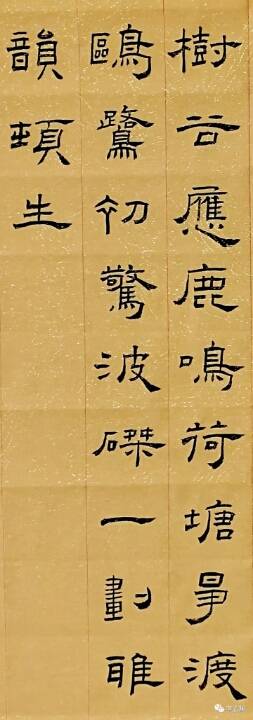 樹谷應鹿鳴荷塘爭渡
鷗鷺初驚波磔一劃雅
韻頓生